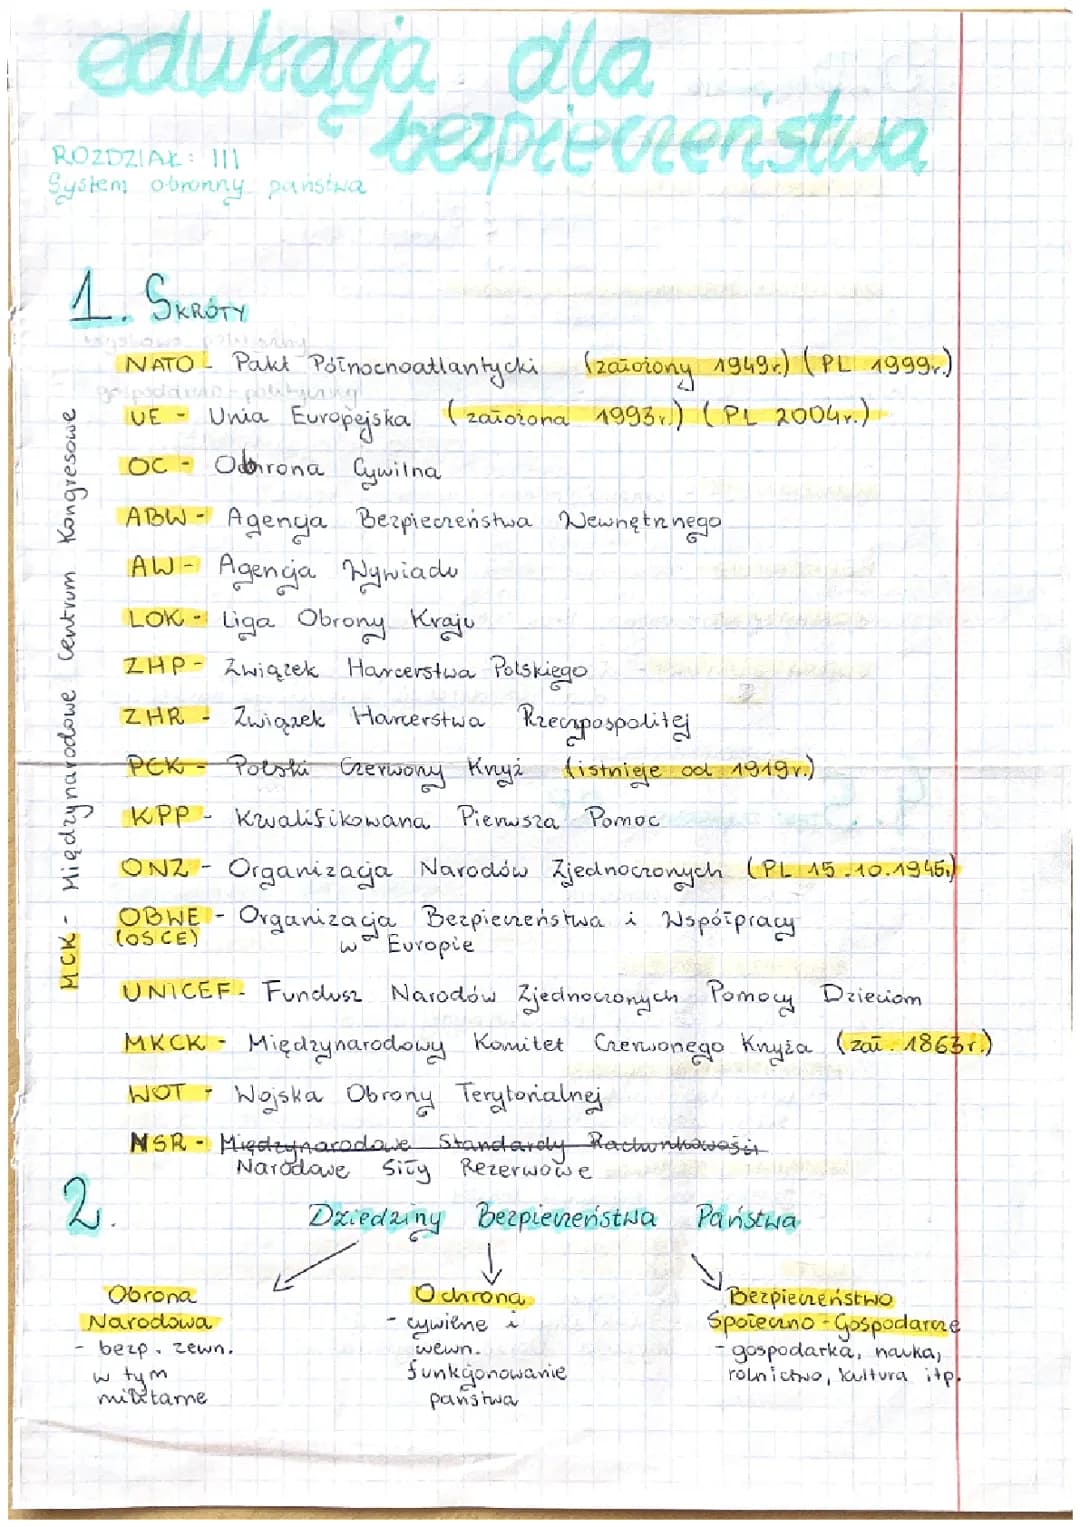 edukacja dla
bezpieczeństwa
ROZDZIAŁ: III
System obronny państwa
1. SKRÓTY
NATO - Pakt Północnoatlantycki (założony 1949r.) (PL 1999r.)
UE - Unia Europejska (założona 1993r.) (PL 2004r.)
OC - Obrona Cywilna
ABW - Agencja Bezpieczeństwa Wewnętrznego
AW - Agencja Wywiadu
LOK - Liga Obrony Kraju
ZHP - Związek Harcerstwa Polskiego
ZHR - Związek Harcerstwa Rzeczpospolitej
PCK - Polski Czerwony Krzyż (istnieje od 1919r.)
KPP - Kwalifikowana Pierwsza Pomoc
ONZ - Organizacja Narodów Zjednoczonych (PL 15.10.1945.)
OBWE - Organizacja Bezpieczeństwa i Współpracy
(OSCE) w Europie
UNICEF - Fundusz Narodów Zjednoczonych Pomocy Dzieciom
MKCK - Międzynarodowy Komitet Czerwonego Krzyża (zał. 1863r.)
WOT - Wojska Obrony Terytorialnej
NSR - Międzynarodowe Standardy Rachunkowości
Narodowe Siły Rezerwowe
MCK - Międzynarodowe Centrum Kongresowe
2. Dziedziny Bezpieczeństwa Państwa
Obrona
Narodowa
- bezp. zewn.
w tym
militarne
Ochrona
- cywilne i
wewn.
funkcjonowanie
państwa
Bezpieczeństwo
Społeczno-Gospodarcze
- gospodarka, nauka,
rolnictwo, kultura itp.